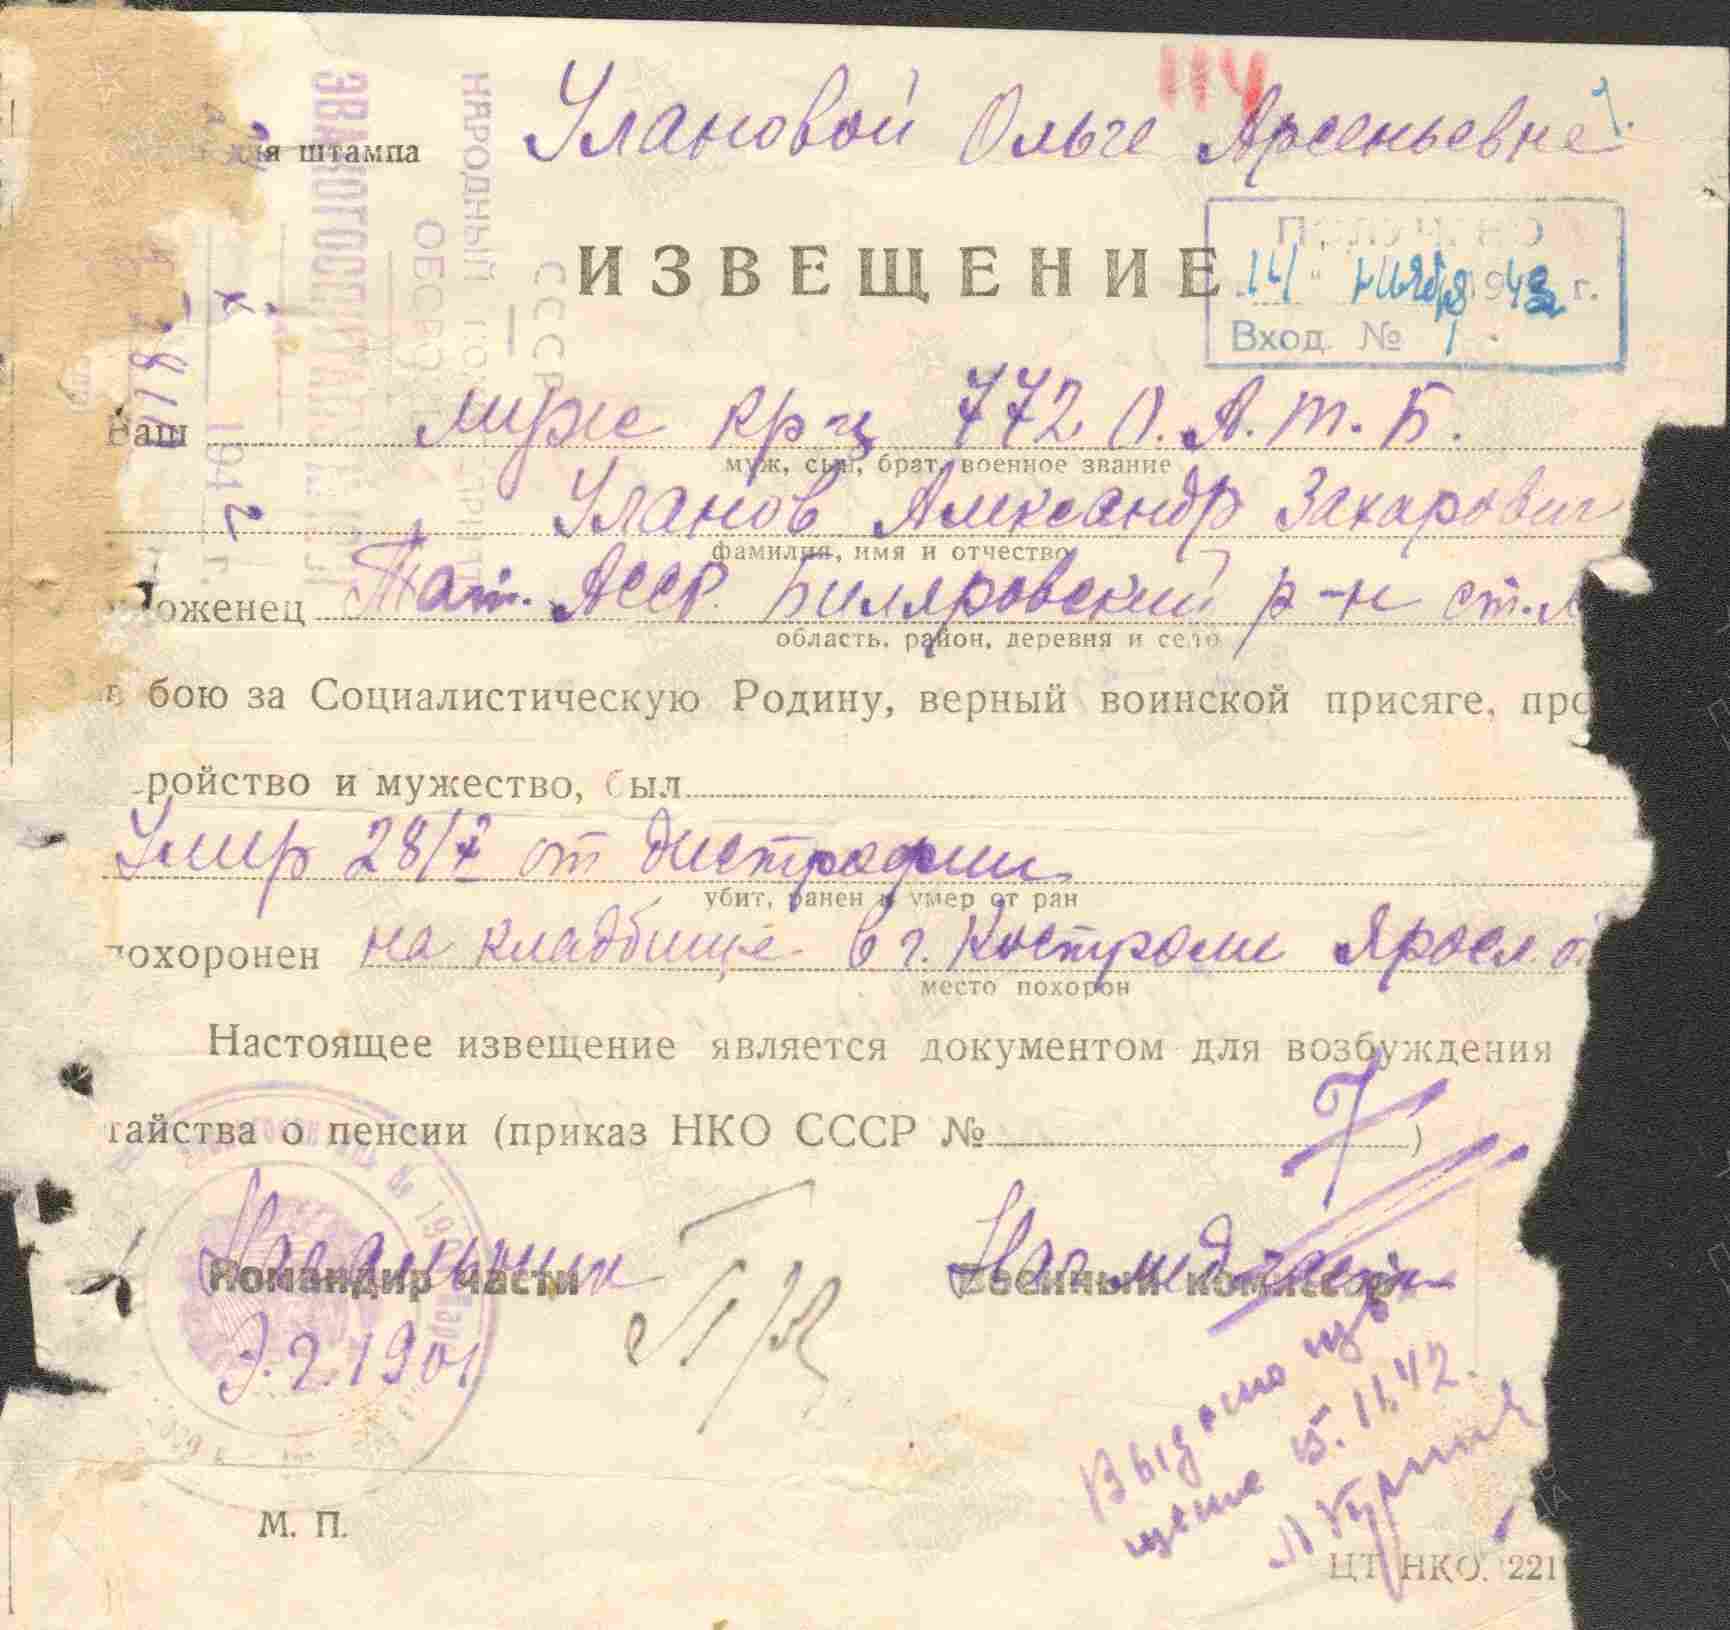 114
для штампа
Улановой Ольге Арсеньевне
НАРОДНЫЙ
СССР
1942 г.
ИЗВЕЩЕНИЕ
Получено
14 " ноября 1942 г.
Вход. №
Ваш муж кр-ц 772 О.А.Т.Б.
муж, сын, брат, военное звание
Уланов Александр Захарович
фамилия, имя и отчество
оженец Тат. АССР. Биляровский р-н ст.
область, район, деревня и село
в бою за Социалистическую Родину, верный воинской присяге, про
ройство и мужество, был
Умер 28/X от дистрофии
убит, ранен и умер от ран
похоронен на кладбище в г. Костроме Яросл о
место похорон
Настоящее извещение является документом для возбуждения
тайства о пенсии (приказ НКО СССР № )
Начальник Нач мед части
Командир части Военный комиссар
Э.Г. 1901
Выдано изве
щение 15.11.42.
М. П.
ЦТ НКО. 221